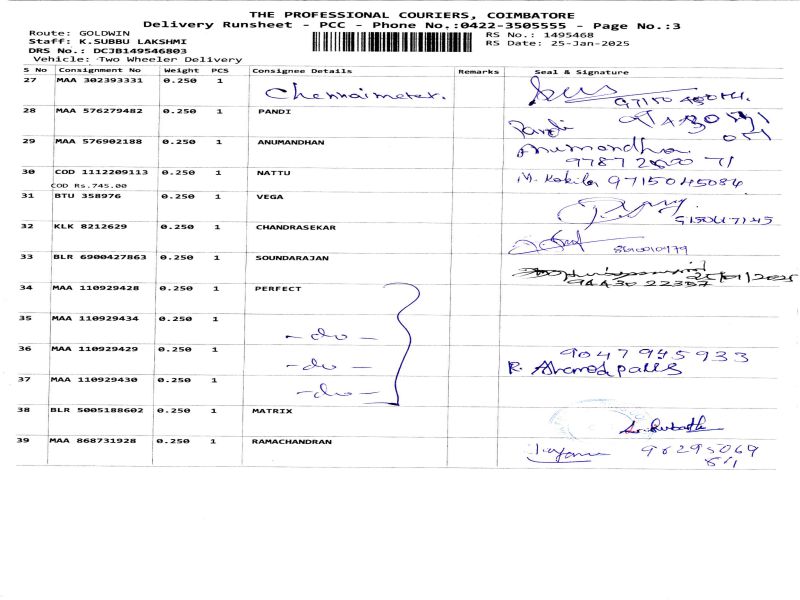 THE PROFESSIONAL COURIERS, COIMBATORE
Delivery Runsheet - PCC - Phone No.:0422-3505555 - Page No.:3
Route: GOLDWIN
Staff: K.SUBBU LAKSHMI
DRS No.: DCJB149546803
Vehicle: Two Wheeler Delivery
RS No.: 1495468
RS Date: 25-Jan-2025
S No Consignment No Weight PCS Consignee Details Remarks Seal & Signature
27 MAA 302393331 0.250 1 Chennaimeter.
28 MAA 576279482 0.250 1 PANDI Pandi
29 MAA 576902188 0.250 1 ANUMANDHAN Anumandhan
30 COD 1112209113 0.250 1 NATTU M. Kokila 9715045084
COD Rs.745.00
31 BTU 358976 0.250 1 VEGA
32 KLK 8212629 0.250 1 CHANDRASEKAR
33 BLR 6900427863 0.250 1 SOUNDARAJAN 25/01/2025
34 MAA 110929428 0.250 1 PERFECT
35 MAA 110929434 0.250 1 -do-
36 MAA 110929429 0.250 1 -do- 9047945933
37 MAA 110929430 0.250 1 -do-
38 BLR 5005188602 0.250 1 MATRIX
39 MAA 868731928 0.250 1 RAMACHANDRAN